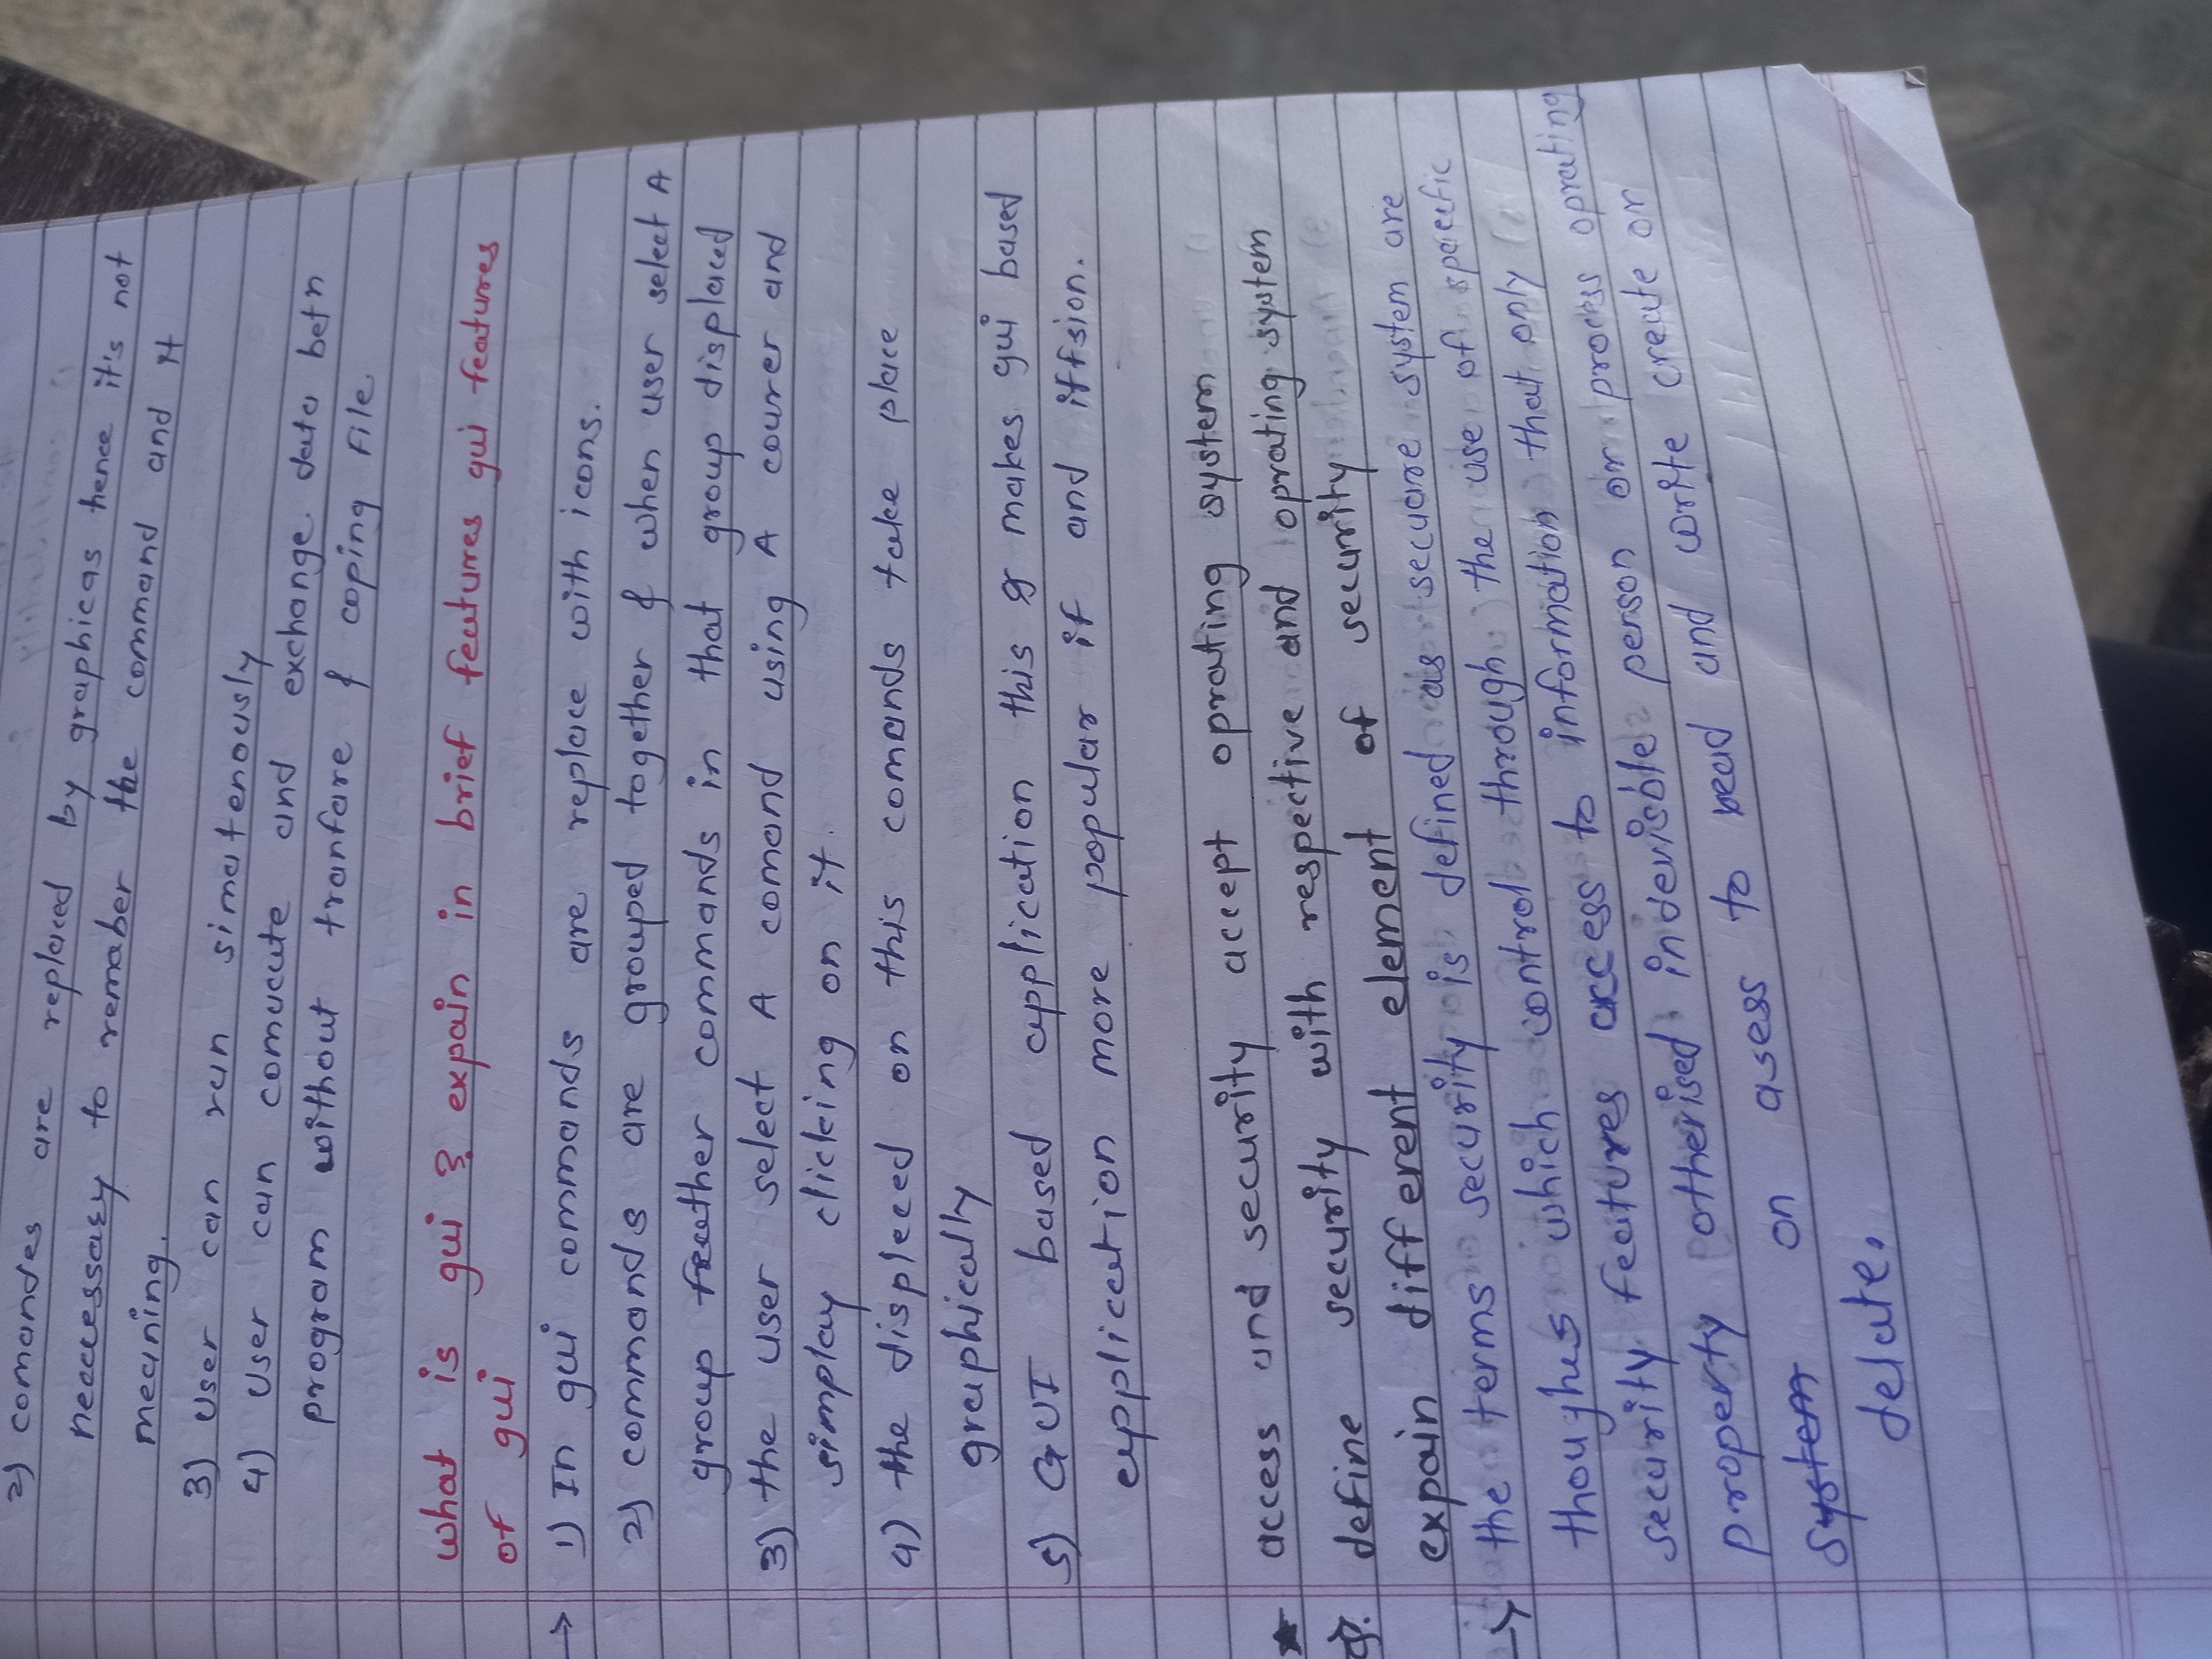 2) comandes are replaced by graphicas hence it's not
neccessasy to remaber the command and it
meaning.
3) User can run simatenously
4) User can comucate and exchange. data betn
program without tranfare & coping File.
what is gui ? expain in brief features gui features
of gui
→ 1) In gui commands are replace with icons.
2) commands are grouped together & when user select A
group feather commands in that group displaced
3) the user select A comand using A courer and
simplay clicking on it.
4) the displeced on this comands take place
graphically
5) GUI based application this makes gui based
application more popular if and iffsion.
★ access and security accept oprating system
Q. define security with respective and oprating system
expain different element of security
→ the terms security is defined as secuare system are
thoughes which control through the use of speecific
security features access to information that only
property otherised indevisble person or process oprating
system on asess to read and write create or
delate.